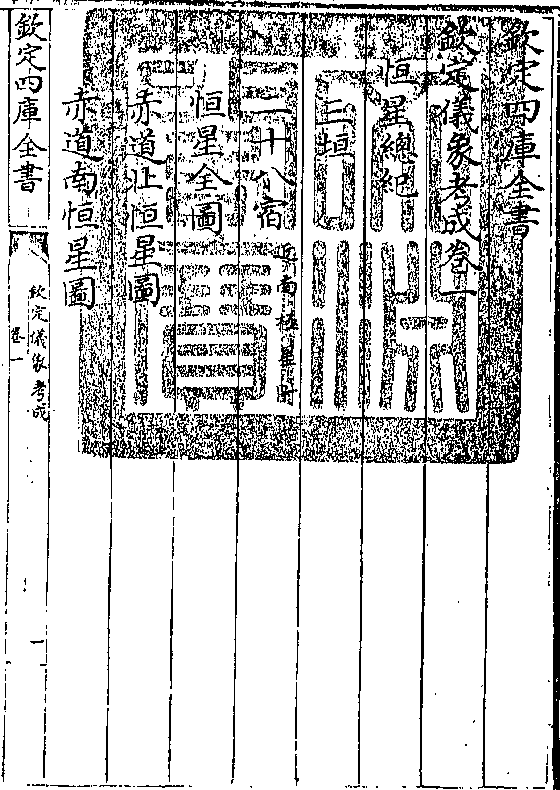 欽定四庫全書
欽定儀象考成卷一
恒星總紀
三垣
二十八宿 近南極星附
恒星全圖
赤道北恒星圖
赤道南恒星圖
欽定四庫全書
欽定儀象考成
卷一
一